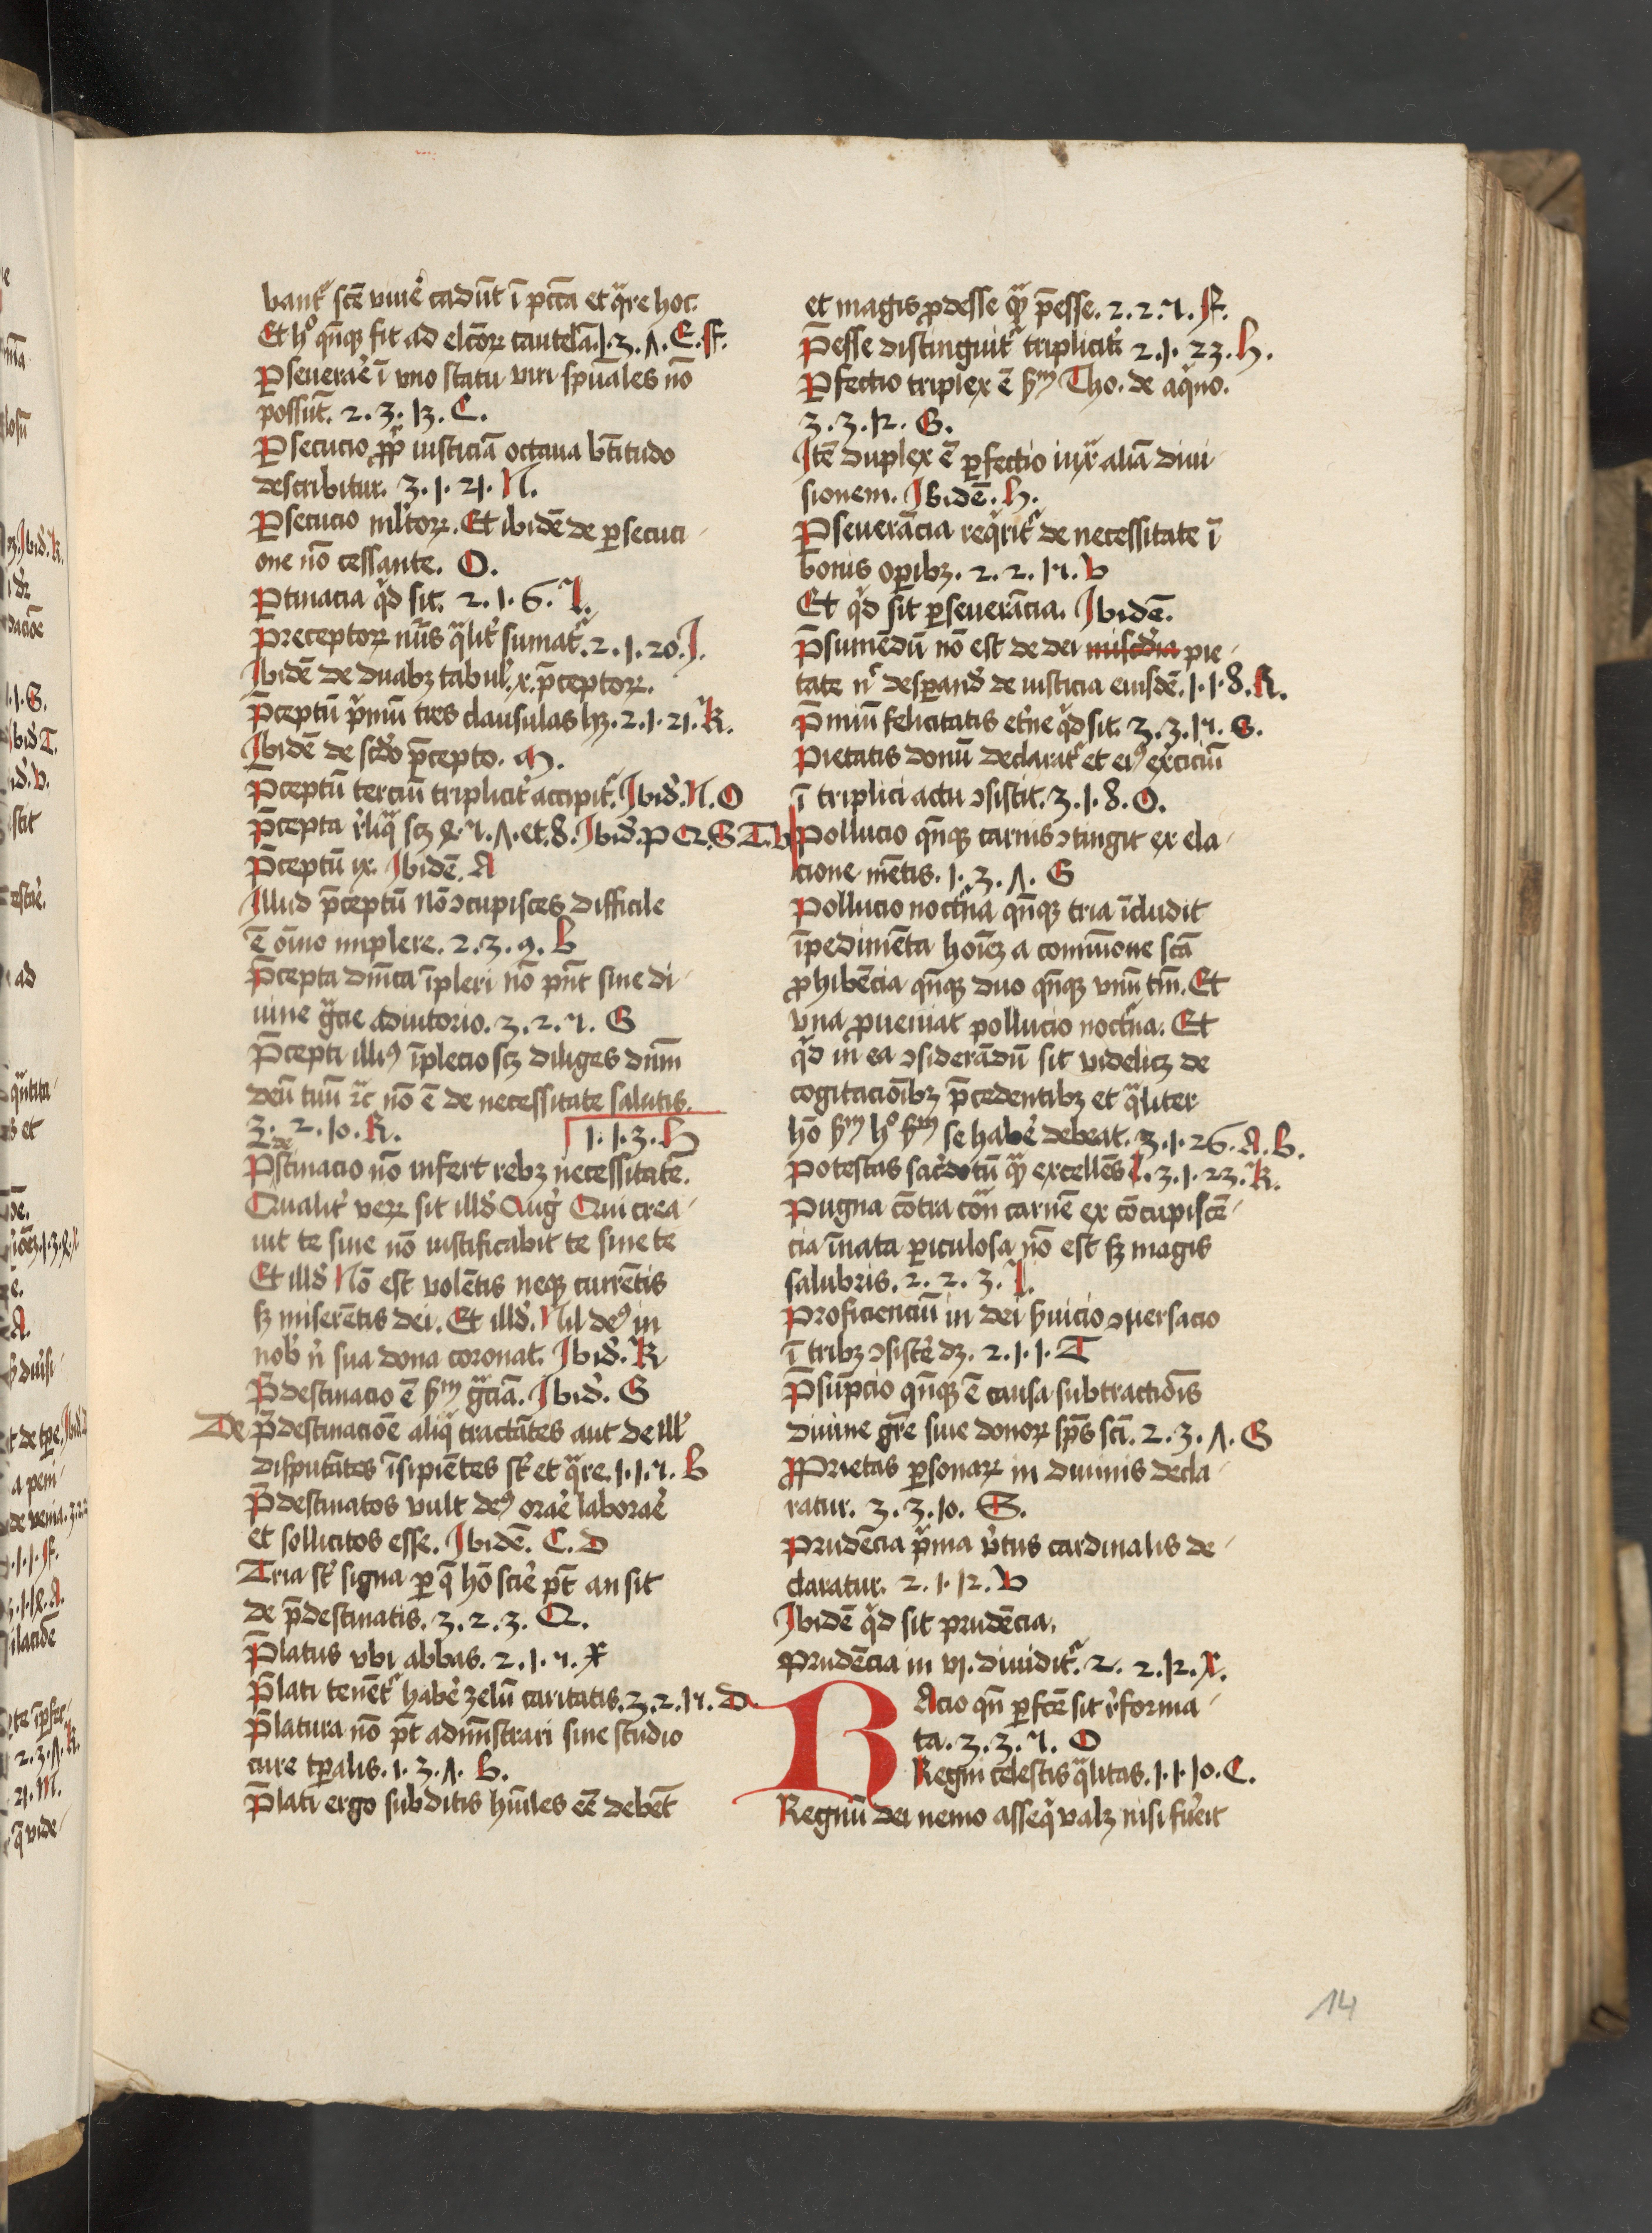 bant᷑ scē viuē cadūt ī pctā et qͣre hoc.
Et hͦ qn̄qꝫ fit ad elc̄oꝝ cautelā. 1. 3. ʌ. E. F.
Ꝑseuerar̄e ī vno statu viri spūales nō
possūt. 2. 3. 13. C.
Ꝑsecucio ꝓp̄ iusticiā octaua bt̄itudo
describitur. 3. 1. 21. N.
Ꝑsecucio ml̓toꝝ. Et ibidē de ꝑsecuci-
one nō cessante. O.
Ꝑtinacia qͥd sit. 2. 1. 6. I.
Preceptoꝝ nūs qͣlit̓ sumat᷑. 2. 1. 20. I.
Ibidē de duabꝫ tabul̓. x. p̄ceptoꝝ.
P̄ceptū pͥmū tres clausulas hꝫ. 2. 1. 21. K.
Ibidē de scd̓o p̄cepto. M.
P̄ceptū terciū triplicit̓ accipit᷑. Ibid̓. N. O
P̄cepta r̓liqͣ scꝫ ꝝ. 7. ʌ. et. 8. Ibid̓. P Q. S T. V
P̄ceptū ix. Ibidē. A
Illud p̄ceptū Nō ꝯcupisces difficile
ē oīno implere. 2. 3. 9. B
P̄cepta diuīa īpleri nō pn̄t sine di-
uine gͣcie adiutorio. 3. 2. 7. G
P̄cepti illiꝰ īplecio scꝫ diliges dn̄m
deū tuū ⁊c̄ nō ē de necessitate salutis.
3. 2. 10. R. 1. 1. 3. H
P̄stinacio nō infert rebꝫ necessitatē.
de
Qualit̓ veꝝ sit ill̓d Aug̓ Qui crea-
uit te sine nō iustificabit te sine te
Et ill̓d Nō est volētis neqꝫ currētis
sꝫ miserētis dei. Et ill̓d. Nil deꝰ in
nob̓ n̓ sua dona coronat. Ibid̓. K
P̄destinacio ē sꝫm gͣciā. Ibid̓. G
De p̄destinacōe aliqͣ tractātes aut de ill̓
disputātes īsipiētes st̓ et qͣre. 1. 1. 7. B
P̄destinatos vult deꝰ orar̄e laborar̄e
et sollicitos esse. Ibidē. C. D
Tria st̓ signa ꝑ q̄ hō scir̄e pt̄ an sit
de p̄destinatis. 3. 2. 3. Q.
P̄latus vbi abbas. 2. 1. 7. X
P̄lati tenēt᷑ habēe zelū caritatis. 3. 2. 17. D
P̄latura nō pt̄ admīstrari sine studio
cure tꝑalis. 1. 3. ʌ. B.
P̄lati ergo subditis hūiles eē debēt
et magis ꝓdesse qͣꝫ p̄esse. 2. 2. 7. F.
P̄esse distinguit᷑ triplicit̓. 2. 1. 23. H.
Ꝑfectio triplex ē sꝫm Tho. de aqͥno.
3. 3. 12. G.
Itē duplex ē ꝑfectio iuxͣ aliā diui-
sionem. Ibidē. H.
Ꝑseuerācia reqͥrit᷑ de necessitate ī
bonis oꝑibꝫ. 2. 2. 17. V
Et qͥd sit ꝑseuerācia. Ibidē.
P̄sumēdū nō est de dei mis̓cdia pie-
tate nͨ desꝑand̓ de iusticia eiusdē. 1. 1. 8. R.
P̄miū felicitatis et̓ne qͥd sit. 3. 3. 17. S.
Pietatis donū declarat᷑ et eiꝰ ex̓ciciū
ī triplici actu ꝯsistit. 3. 1. 8. O.
Pollucio qn̄qꝫ carnis ꝯtingit ex ela-
cione mētis. 1. 3. ʌ. G
Pollucio noct᷑na qn̄qꝫ tria īcludit
īpedimēta hoīeꝫ a cōmūione sctā
ꝓhibēcia qn̄qꝫ duo qn̄qꝫ vnū tm̄. Et
vna ꝓueniat pollucio noct᷑na. Et
qͥd in ea ꝯsiderādū sit videlicꝫ de
cogitacōibꝫ p̄cedentibꝫ et qͣliter
hō sꝫm hͦ sꝫm se habēe debeat. 3. 1. 26. A. B.
Potestas sacer̓dotū qͣꝫ excellēs. 3. 1. 23. K.
Pugna cōtra carnē ex cōcupiscē-
cia īnata ꝑiculosa nō est sꝫ magis
salubris. 2. 2. 3. I.
Proficienciū in dei s̓uicio ꝯuersacio
ī tribꝫ ꝯsister̄e dꝫ. 2. 1. 1. T
P̄sūpcio qn̄qꝫ ē causa subtractiōis
diuine gr̄e siue donoꝝ spūs scī. 2. 3. ʌ. G
Ꝓprietas ꝑsonaꝝ in diuinis decla-
ratur. 3. 3. 10. S.
Prudēcia pͥma v̓tus cardinalis de-
claratur. 2. 1. 12. V
Ibidē qͥd sit prudēcia.
Prudēcia in vj. diuidit᷑. 2. 2. 12. X.
RAcio qn̄ ꝑfctē sit r̓forma-
ta. 3. 3. 7. O
Regni celestis qͣlitas. 1. 1. 10. C.
Regnū dei nemo asseqͥ valꝫ nisi fu̓it
14